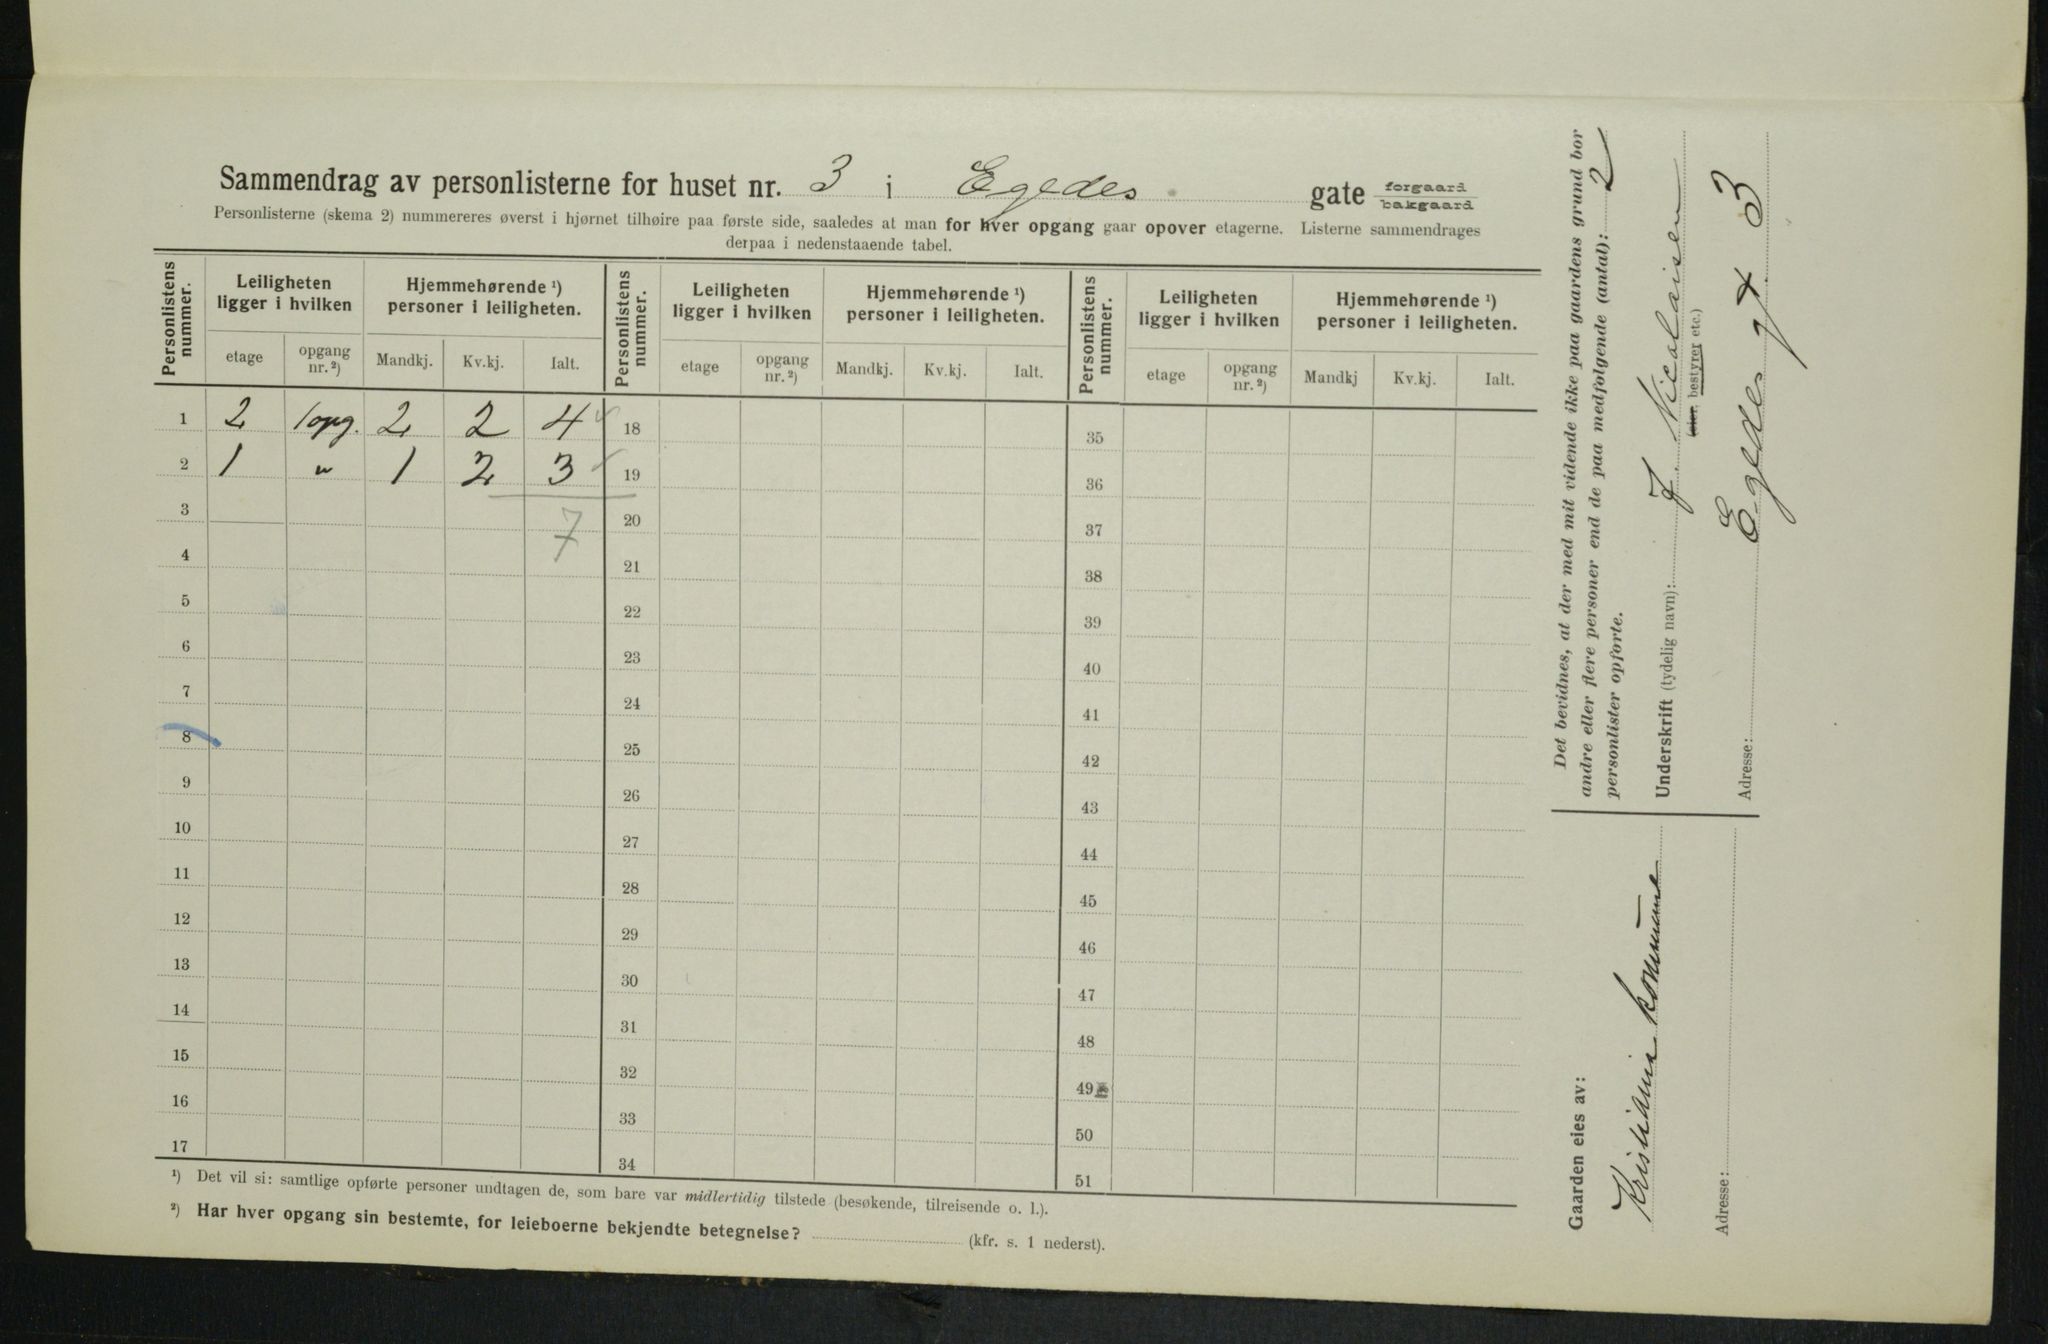 Sammendrag av personlisterne for huset nr. 3 i Egedes gate forgaard bakgaard
Personlisterne (skema 2) nummereres øverst i hjørnet tilhøire paa første side, saaledes at man for hver opgang gaar opover etagerne. Listerne sammendrages
derpaa i nedenstaaende tabel.
Personlistens nummer. Leiligheten ligger i hvilken Hjemmehørende ¹) personer i leiligheten. Personlistens nummer. Leiligheten ligger i hvilken Hjemmehørende ¹) personer i leiligheten. Personlistens nummer. Leiligheten ligger i hvilken Hjemmehørende ¹) personer i leiligheten.
etage opgang nr. ²) Mandkj. Kv.kj. Ialt. etage opgang nr. ²) Mandkj. Kv.kj. Ialt. etage opgang nr. ²) Mandkj Kv.kj. Ialt.
1 2 1opg. 2 2 4 18 35
2 1 " 1 2 3 19 36
3 7 20 37
4 21 38
5 22 39
6 23 40
7 24 41
8 25 42
9 26 43
10 27 44
11 28 45
12 29 46
13 30 47
14 31 48
15 32 49
16 33 50
17 34 51
¹) Det vil si: samtlige opførte personer undtagen de, som bare var midlertidig tilstede (besøkende, tilreisende o. l.).
²) Har hver opgang sin bestemte, for leieboerne bekjendte betegnelse? (kfr. s. 1 nederst).
Det bevidnes, at der med mit vidende ikke paa gaardens grund bor
andre eller flere personer end de paa medfolgende (antal): 2
personlister opforte.
Underskrift (tydelig navn): J. Nicolaisen
(eier, bestyrer etc.)
Adresse: Egedes gt 3
Gaarden eies av:
Kristiania kommune
Adresse: